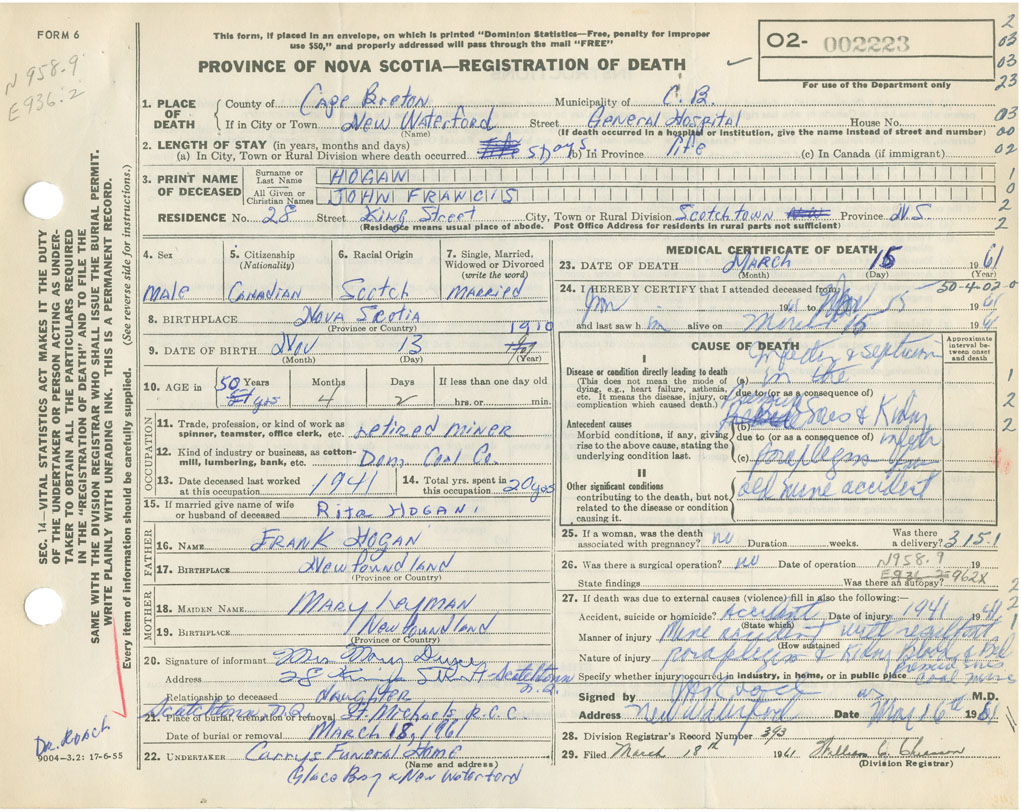 FORM 6
This form, if placed in an envelope, on which is printed "Dominion Statistics—Free, penalty for improper
use $50," and properly addressed will pass through the mail "FREE"
PROVINCE OF NOVA SCOTIA—REGISTRATION OF DEATH
02- 002223
For use of the Department only
2
03
03
23
03
00
02
1
0
2
2
N 958.9
E936.2
1. PLACE OF DEATH
County of Cape Breton Municipality of C. B.
If in City or Town New Waterford Street General Hospital House No.
(Name) (If death occurred in a hospital or institution, give the name instead of street and number)
2. LENGTH OF STAY (in years, months and days)
(a) In City, Town or Rural Division where death occurred 5 Days (b) In Province life (c) In Canada (if immigrant)
3. PRINT NAME OF DECEASED
Surname or Last Name HOGAN
All Given or Christian Names JOHN FRANCIS
RESIDENCE No. 28 Street King Street City, Town or Rural Division Scotchtown Province N.S.
(Residence means usual place of abode. Post Office Address for residents in rural parts not sufficient)
SEC. 14—VITAL STATISTICS ACT MAKES IT THE DUTY
OF THE UNDERTAKER OR PERSON ACTING AS UNDER-
TAKER TO OBTAIN ALL THE PARTICULARS REQUIRED
IN THE "REGISTRATION OF DEATH" AND TO FILE THE
SAME WITH THE DIVISION REGISTRAR WHO SHALL ISSUE THE BURIAL PERMIT.
WRITE PLAINLY WITH UNFADING INK. THIS IS A PERMANENT RECORD.
Every item of information should be carefully supplied. (See reverse side for instructions.)
4. Sex Male
5. Citizenship (Nationality) Canadian
6. Racial Origin Scotch
7. Single, Married, Widowed or Divorced (write the word) Married
8. BIRTHPLACE Nova Scotia
(Province or Country)
9. DATE OF BIRTH Nov 13 1910
(Month) (Day) (Year)
10. AGE in 50 Years 4 Months 2 Days If less than one day old
hrs. or min.
OCCUPATION
11. Trade, profession, or kind of work as spinner, teamster, office clerk, etc. retired miner
12. Kind of industry or business, as cotton-mill, lumbering, bank, etc. Dom. Coal Co.
13. Date deceased last worked at this occupation 1941
14. Total yrs. spent in this occupation 20 yrs
15. If married give name of wife or husband of deceased Rita HOGAN
FATHER
16. NAME FRANK HOGAN
17. BIRTHPLACE Newfoundland
(Province or Country)
MOTHER
18. MAIDEN NAME MARY Layman
19. BIRTHPLACE Newfoundland
(Province or Country)
20. Signature of informant Mrs Mary
Address 28 King Street Scotchtown
Relationship to deceased DAUGHTER
21. Place of burial, cremation or removal St. Michaels R.C.C.
Date of burial or removal March 18, 1961
22. UNDERTAKER Currys Funeral Home
(Name and address)
Glace Bay & New Waterford
DR. ROACH
9004—3.2: 17-6-55
MEDICAL CERTIFICATE OF DEATH
23. DATE OF DEATH March 15 1961
(Month) (Day) (Year)
24. I HEREBY CERTIFY that I attended deceased from:
and last saw h im alive on March 15 1961
CAUSE OF DEATH
Approximate interval between onset and death
I
Disease or condition directly leading to death
(This does not mean the mode of dying, e.g., heart failure, asthenia, etc. It means the disease, injury, or complication which caused death.)
(a) in the
due to (or as a consequence of)
Antecedent causes
Morbid conditions, if any, giving rise to the above cause, stating the underlying condition last.
(b) Sores & Kidney
due to (or as a consequence of)
(c) paraplegia from
II
Other significant conditions
contributing to the death, but not related to the disease or condition causing it.
old mine accident
1
2
2
25. If a woman, was the death associated with pregnancy? no Duration weeks. Was there a delivery? 315.1
26. Was there a surgical operation? no Date of operation 19
N958.9
State findings Was there an autopsy?
E962X
27. If death was due to external causes (violence) fill in also the following:—
Accident, suicide or homicide? Accident Date of injury 1941
(State which)
Manner of injury Mine accident with resultant
(How sustained)
Nature of injury paraplegia & Kidney
Specify whether injury occurred in industry, in home, or in public place coal mine
Signed by M.D.
Address New Waterford Date Mar 16th 1961
28. Division Registrar's Record Number 393
29. Filed March 18th 1961 William C. Chiasson
(Division Registrar)